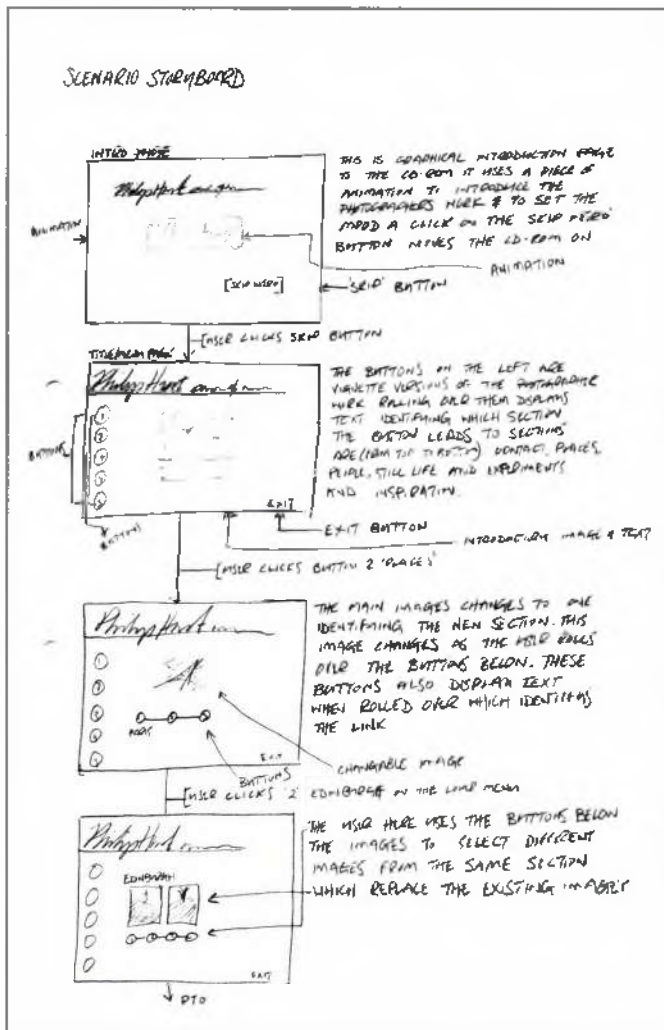 SCENARIO STORYBOARD
INTRO
THIS IS GRAPHICAL INTRODUCTION PAGE
TO THE CD-ROM IT USES A PIECE OF
ANIMATION TO INTRODUCE THE
PHOTOGRAPHERS WORK & TO SET THE
MOOD A CLICK ON THE SKIP INTRO
BUTTON MOVES THE CD-ROM ON
Philip Hunt
ANIMATION
ANIMATION
[SKIP INTRO]
'SKIP' BUTTON
[USER CLICKS SKIP BUTTON
TITLE/MAIN PAGE
Philip Hunt
THE BUTTONS ON THE LEFT ARE
VIGNETTE VERSIONS OF THE PHOTOGRAPHIC
WORK ROLLING OVER THEM DISPLAYS
TEXT IDENTIFYING WHICH SECTION
THE BUTTON LEADS TO SECTIONS
ARE (FROM TOP TO BOTTOM) CONTACT, PLACES,
PEOPLE, STILL LIFE AND EXPERIMENTS
AND INSPIRATION.
1
2
3
4
5
BUTTONS
BUTTONS
EXIT
EXIT BUTTON
INTRODUCTORY IMAGE & TEXT
[USER CLICKS BUTTON 2 'PLACES'
Philip Hunt
THE MAIN IMAGES CHANGES TO ONE
IDENTIFYING THE NEW SECTION. THIS
IMAGE CHANGES AS THE USER ROLLS
OVER THE BUTTONS BELOW. THESE
BUTTONS ALSO DISPLAY TEXT
WHEN ROLLED OVER WHICH IDENTIFIES
THE LINK
EXIT
CHANGABLE IMAGE
BUTTONS
[USER CLICKS '2' EDINBURGH ON THE MENU
Philip Hunt
THE USER HERE USES THE BUTTONS BELOW
THE IMAGES TO SELECT DIFFERENT
IMAGES FROM THE SAME SECTION
WHICH REPLACE THE EXISTING IMAGES
EDINBURGH
EXIT
PTO